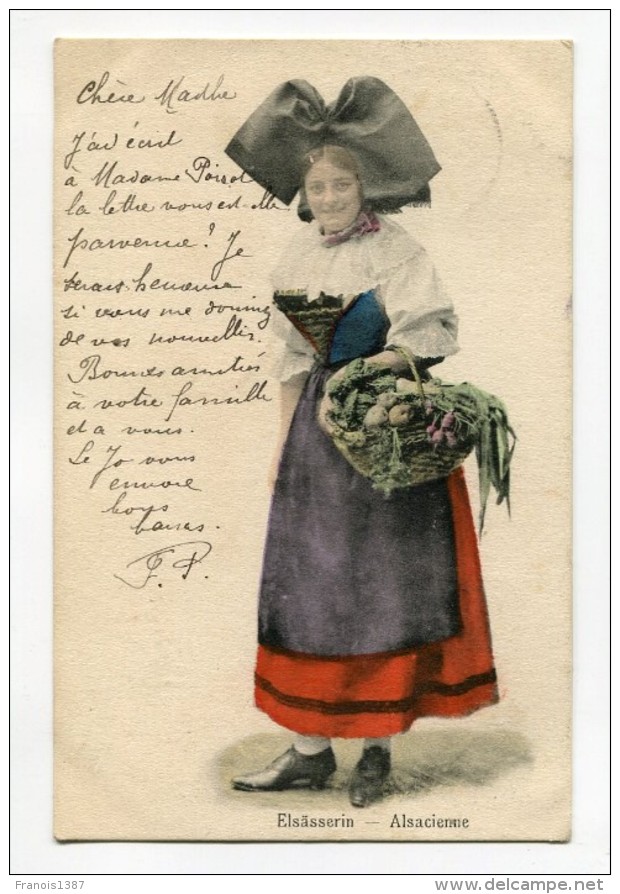 Chère Madlle
J'ai écrit
à Madame Poirot
la lettre vous est-elle
parvenue? Je
serais heureuse
si vous me donniez
de vos nouvelles.
Bonnes amitiés
à votre famille
et a vous.
Je vous
envoie
bons
baisers.
F. P.
Elsässerin — Alsacienne
Francois1387
www.delcampe.net